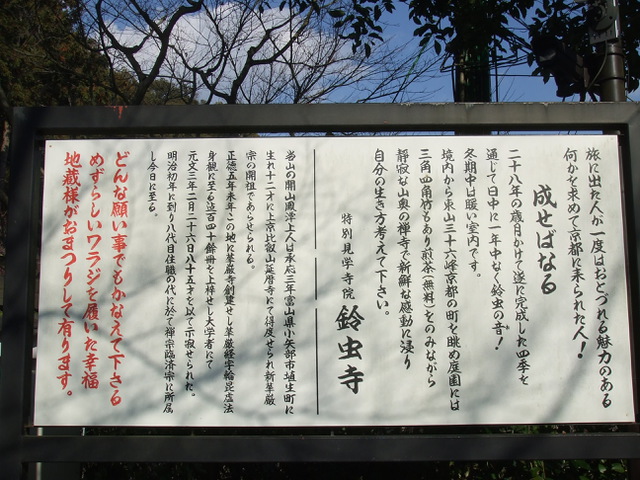 旅に出た人が一度はおとづれる魅力のある
何かを求めて京都に来られた人!
成せばなる
二十八年の歳月かけて遂に完成した四季を
通じて日中に一年中なく鈴虫の音!
冬期中は暖い室内です。
境内から東山三十六峰京都の町を眺め庭園には
三角四角竹もあり煎茶(無料)をのみながら
静寂な山奥の禅寺で新鮮な感動を浸り
自分の生き方考えて下さい。
特別見学寺院 鈴虫寺
当山の開山鳳潭上人は承応三年富山県小矢部市埴生町に
生れ十二才に上京比叡山延暦寺にて得度せられ新華厳
宗の開祖であらせられる。
正徳五年未年この地に華厳寺創建せし華厳経字輪毘盧法
身観に至る迄百四十余冊を上梓せし大学者にて
元文三年二月二十六日八十五才を以て示寂せられた。
明治初年に到り八代目住職の代に於て禅宗臨済宗に所属
し今日に至る。
どんな願い事でもかなえて下さる
めずらしいワラジを履いた幸福
地蔵様がおまつりして有ります。